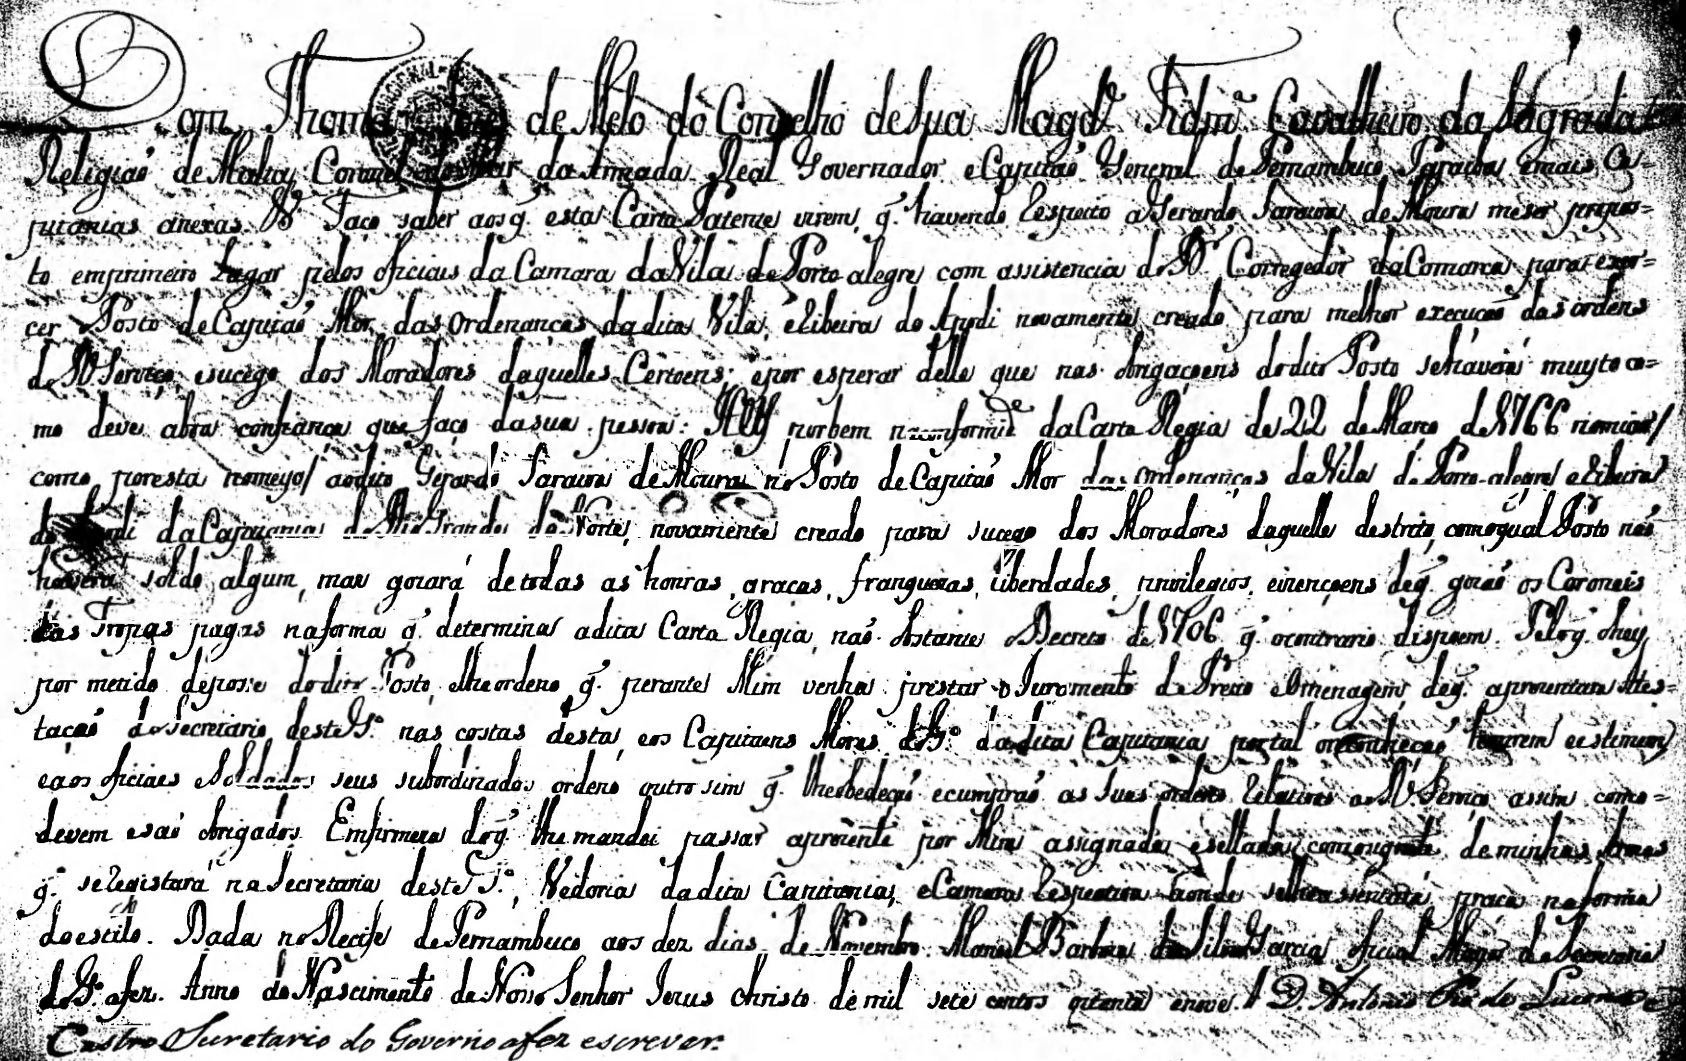 Dom Thomaz Joze de Melo do Conselho de Sua Magd.e Fidm.a Cavalheiro da Sagrada
Religiaõ de Malta, Coronel do Mar da Armada Real Governador e Capitaõ General de Pernambuco Paraiba e mais Ca-
pitanias anexas &ª Faço saber aos q̃ esta Carta Patente virem, q̃ havendo Respeito a Gerardo Saraiva de Moura me ser propos=
to em primeiro lugar pelos oficiais da Camara da Vila de Porto alegre com assistencia do Dr. Corregedor da Comarca para exer=
cer o Posto de Capitaõ Mor das Ordenanças da dita Vila, e Ribeira do Apodi novamente creado para melhor execuçaõ das ordens
do Rl Serviço, e sucego dos Moradores daquelles Certoens; e por esperar delle que nas obrigaçoens do dito Posto se haverá muyto co=
mo deve a boa confiança que faço da sua pessoa: Hey por bem na conformid.e da Carta Regia de 22 de Março de 1766 nomiar/
como por esta nomeyo/ ao dito Gerardo Saraiva de Moura no Posto de Capitaõ Mor das Ordenanças da Vila de Porto-alegre e Ribeira
do Apodi da Capitania do Rio Grande do Norte, novamente creado para sucego dos Moradores daquelle destrito, com o qual Posto naõ
haverá soldo algum, mas gozará de todas as honras, graças, franquezas, liberdades, privilegios, e izençoens de q̃ gozaõ os Coroneis
das Tropas pagas na forma q̃ determina a dita Carta Regia, naõ obstante o Decreto de 1706 q̃ o contrario dispoem. Pelo q̃ o hey
por metido de posse do dito Posto, e lhe ordeno q̃ perante Mim venha prestar o Juramento de Preito e Omenagem, de q̃ aprezentará Ates=
taçaõ do Secretario deste G.o nas costas desta, e os Capitaens Mores do G.o da dita Capitania por tal o reconheçaõ, honrem e estimem
e aos oficiaes e Soldados seus subordinados ordeno outro sim q̃ lhe obedeçaõ e cumpraõ as suas ordens Relativas ao Rl Serviço assim como=
devem e saõ obrigados. Em firmeza do q̃ lhe mandei passar a prezente por Mim assignada, e sellada com o signete de minhas Armas
q̃ se Registará na Secretaria deste G.o, Vedoria da dita Capitania, e Camara Respectiva aonde se lhe assentará praça na forma
do estilo. Dada no Recife de Pernambuco aos dez dias de Novembro. Manoel Barboza da Silva Garcia oficial Mayor da Secretaria
do G.o a fez. Anno do Nascimento de Nosso Senhor Jezus Christo de mil sete centos oitenta e nove. // D. Antonio Pio de Lucena e
Castro Secretario do Governo a fez escrever.